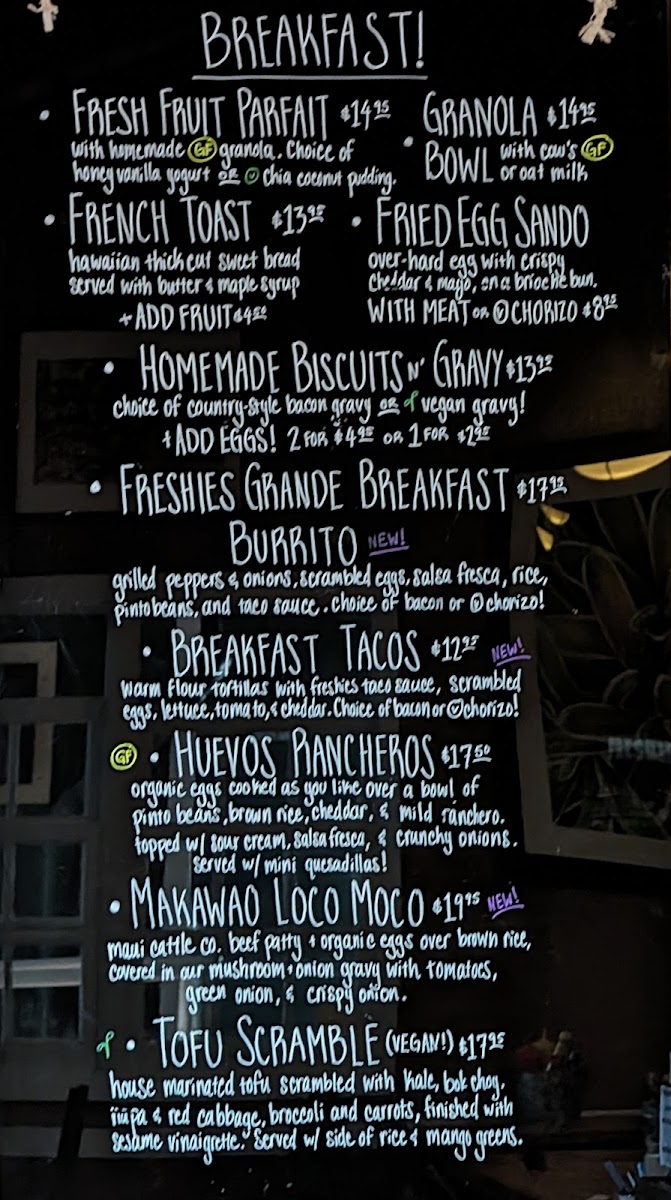 BREAKFAST!
• FRESH FRUIT PARFAIT $14.95
with homemade GF granola. Choice of
honey vanilla yogurt OR V chia coconut pudding.
• GRANOLA $14.95
BOWL with cow's GF
or oat milk
• FRENCH TOAST $13.95
hawaiian thick cut sweet bread
served with butter & maple syrup
+ ADD FRUIT $4.50
• FRIED EGG SANDO
over-hard egg with crispy
cheddar & mayo, on a brioche bun.
WITH MEAT OR V CHORIZO $8.95
• HOMEMADE BISCUITS N' GRAVY $13.95
choice of country-style bacon gravy OR vegan gravy!
+ ADD EGGS! 2 FOR $4.95 OR 1 FOR $2.95
• FRESHIES GRANDE BREAKFAST $17.95
BURRITO NEW!
grilled peppers & onions, scrambled eggs, salsa fresca, rice,
pinto beans, and taco sauce. choice of bacon or V chorizo!
• BREAKFAST TACOS $12.95 NEW!
warm flour tortillas with freshies taco sauce, scrambled
eggs, lettuce, tomato, & cheddar. Choice of bacon or V chorizo!
GF • HUEVOS RANCHEROS $17.50
organic eggs cooked as you like over a bowl of
pinto beans, brown rice, cheddar, & mild ranchero.
topped w/ sour cream, salsa fresca, & crunchy onions.
served w/ mini quesadillas!
• MAKAWAO LOCO MOCO $19.95 NEW!
maui cattle co. beef patty + organic eggs over brown rice,
covered in our mushroom + onion gravy with tomatoes,
green onion, & crispy onion.
• TOFU SCRAMBLE (VEGAN!) $17.95
house marinated tofu scrambled with kale, bok choy,
napa & red cabbage, broccoli and carrots, finished with
sesame vinaigrette. Served w/ side of rice & mango greens.